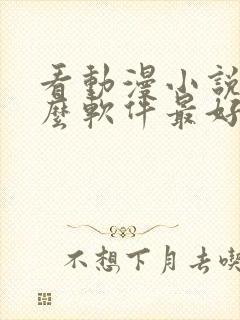 看動漫小說
麼軟件最好
不想下月去喫